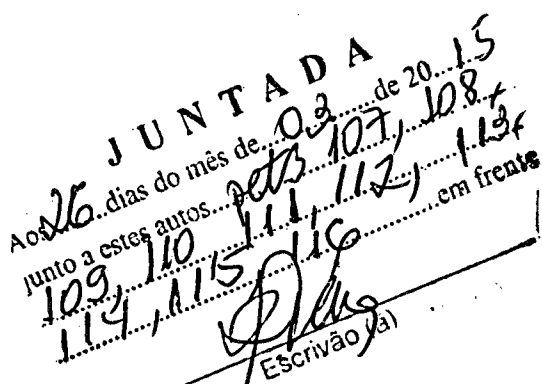 JUNTADA
Aos 26 dias do mês de 02 de 2015
junto a estes autos pets 107, 108,
109, 110 111, 112, 113,
114, 115 116 em frente
Escrivão (a)